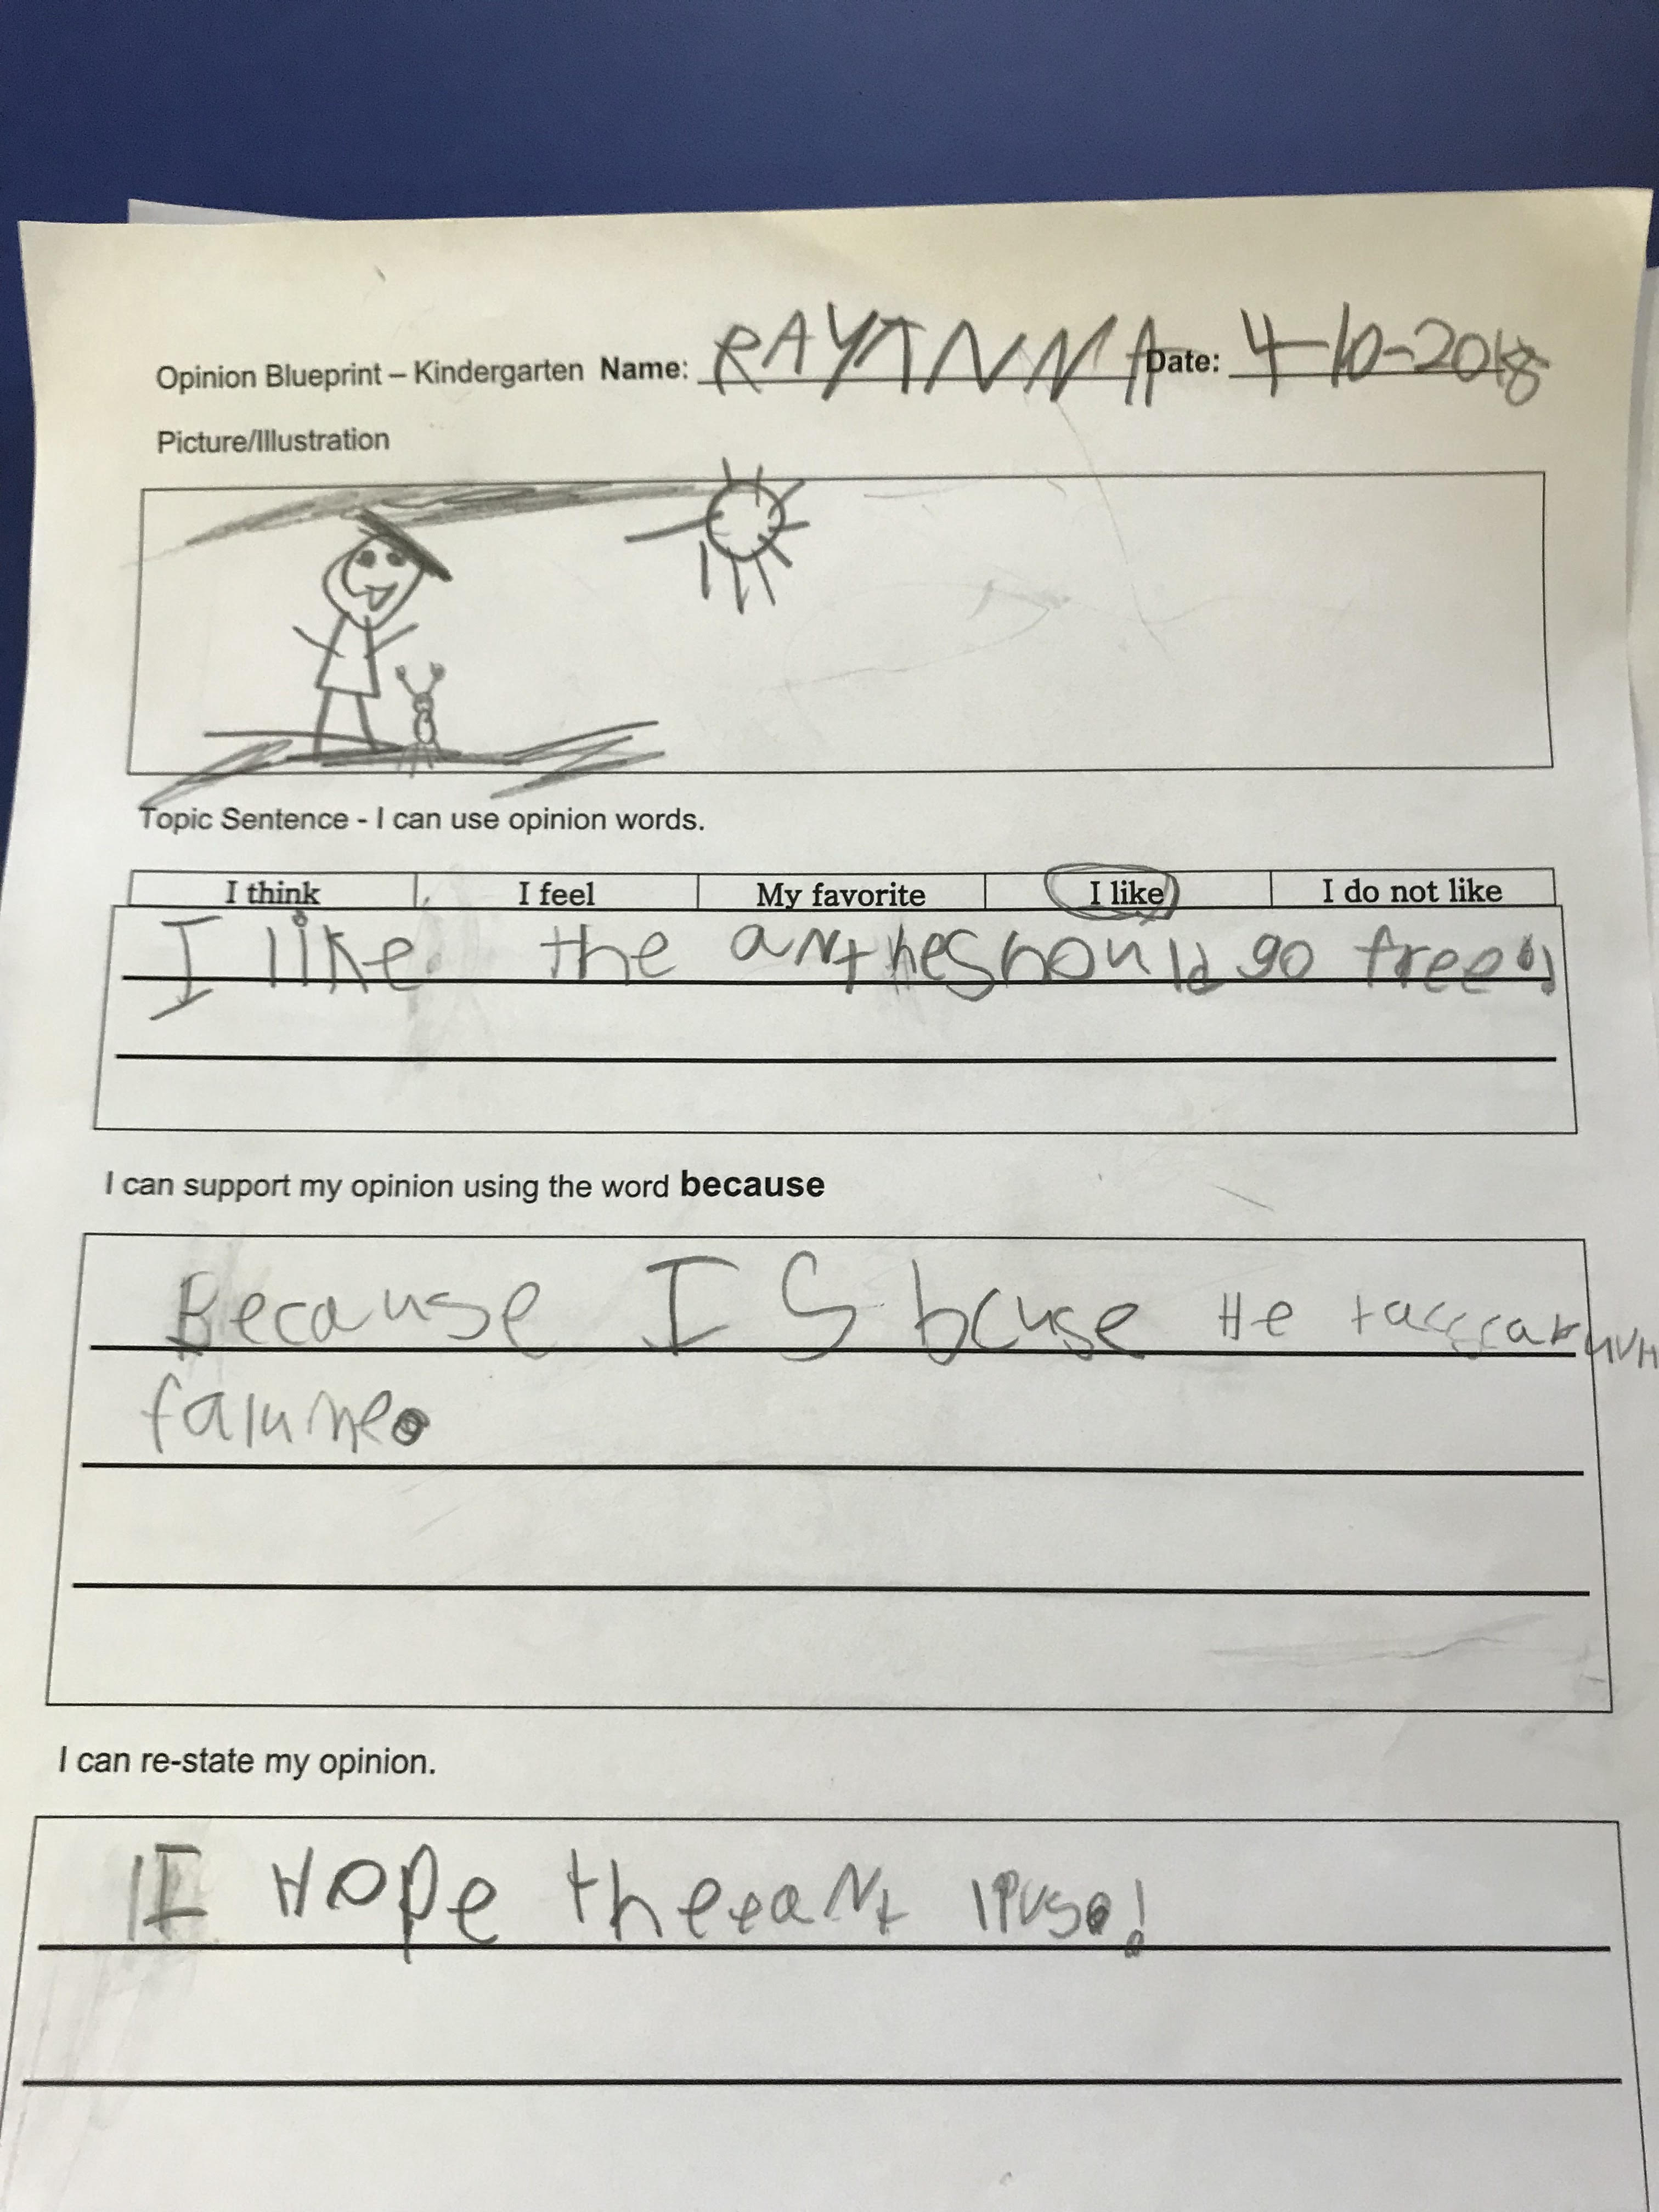 Opinion Blueprint – Kindergarten Name: RAYANNA Date: 4-10-2018
Picture/Illustration
Topic Sentence - I can use opinion words.
I think I feel My favorite I like I do not like
I like the ant he should go free!
I can support my opinion using the word because
Because I S bcuse He
I can re-state my opinion.
I HOPe the ant